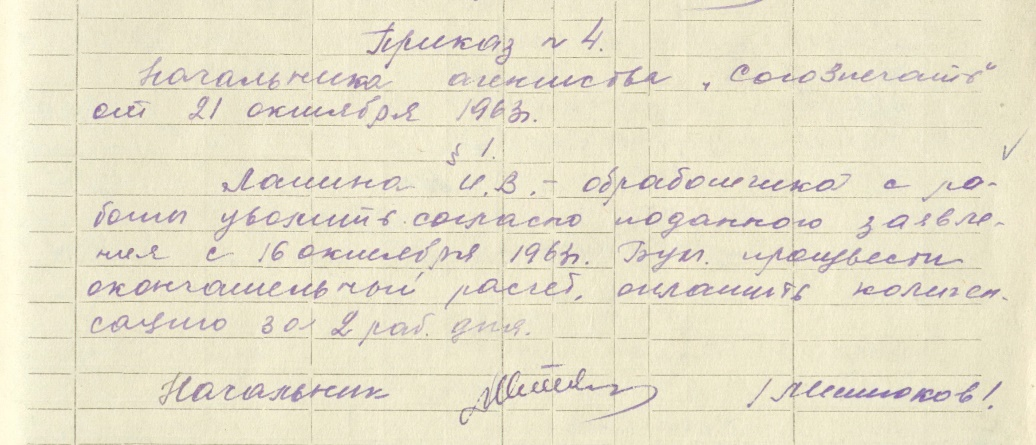 Приказ № 4.
Начальника агентства „Союзпечать“
от 21 октября 1963г.
§ 1.
Лапина И.В. – обработчика с ра-
боты уволить согласно поданного заявле-
ния с 16 октября 1963г. Бухг. произвести
окончательный расчет, оплатить компен-
сацию за 2 раб. дня.
Начальник /Мишуков/.